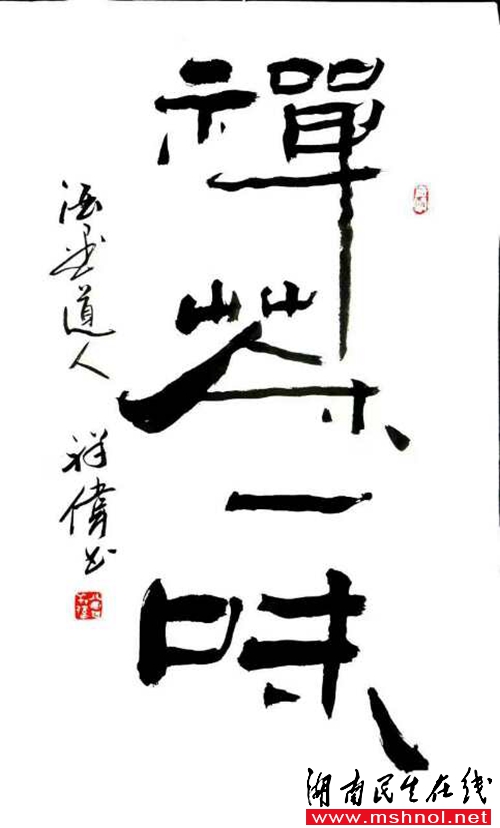 禪茶一味
道人
祥偉书
湖南民生在线
www.mshnol.net